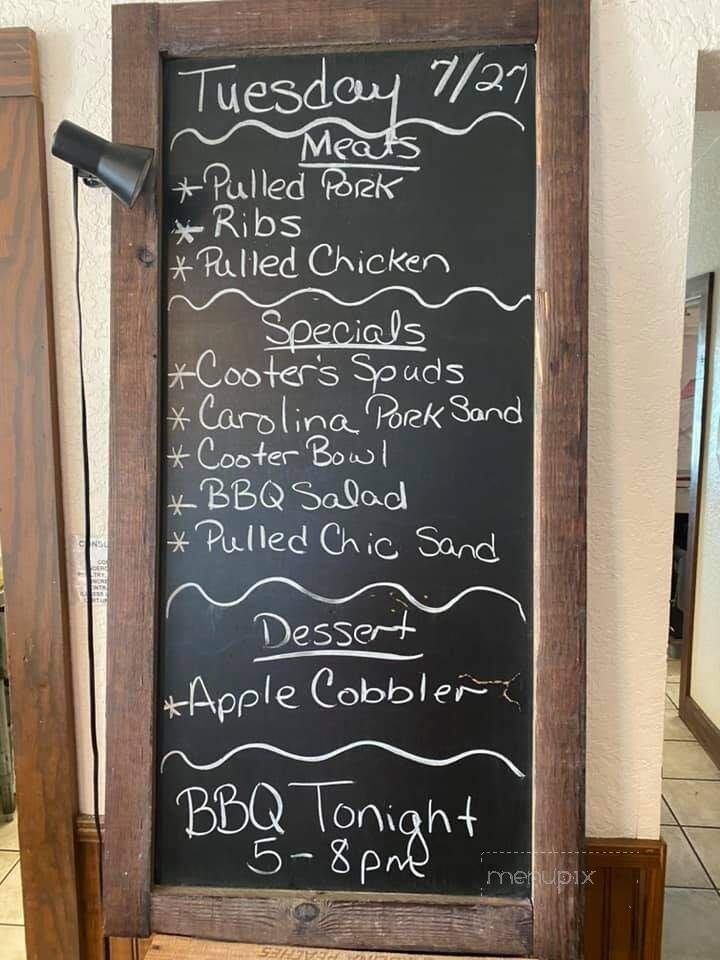 Tuesday 7/27
Meats
* Pulled Pork
* Ribs
* Pulled Chicken
Specials
* Cooter's Spuds
* Carolina Pork Sand
* Cooter Bowl
* BBQ Salad
* Pulled Chic Sand
Dessert
* Apple Cobbler
BBQ Tonight
5-8pm
menupix
PEACHES